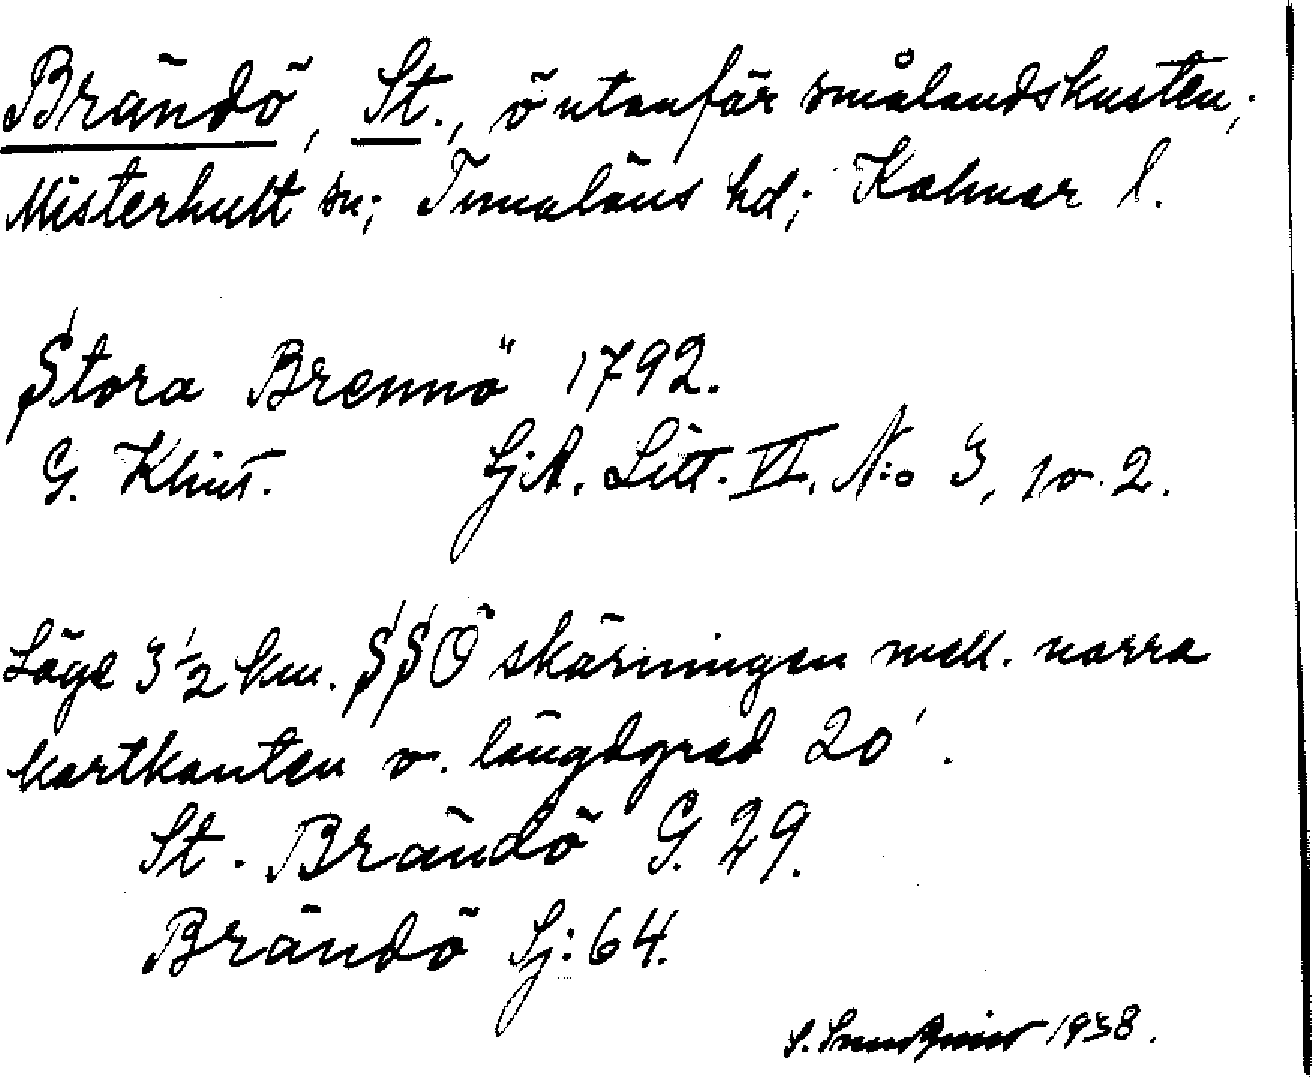 Brändö, St., ö utanför smålandskusten;
Misterhult sn; Tunaläns hd; Kalmar l.
Stora Brennö 1792.
G. Klint. SjA. Litt. VI. N:o 3, 1 o. 2.
Läge 3 1/2 km. SSÖ skärningen mell. norra
kartkanten o. längdgrad 20'.
St. Brändö G. 29.
Brändö Sj: 64.
S. 1938.